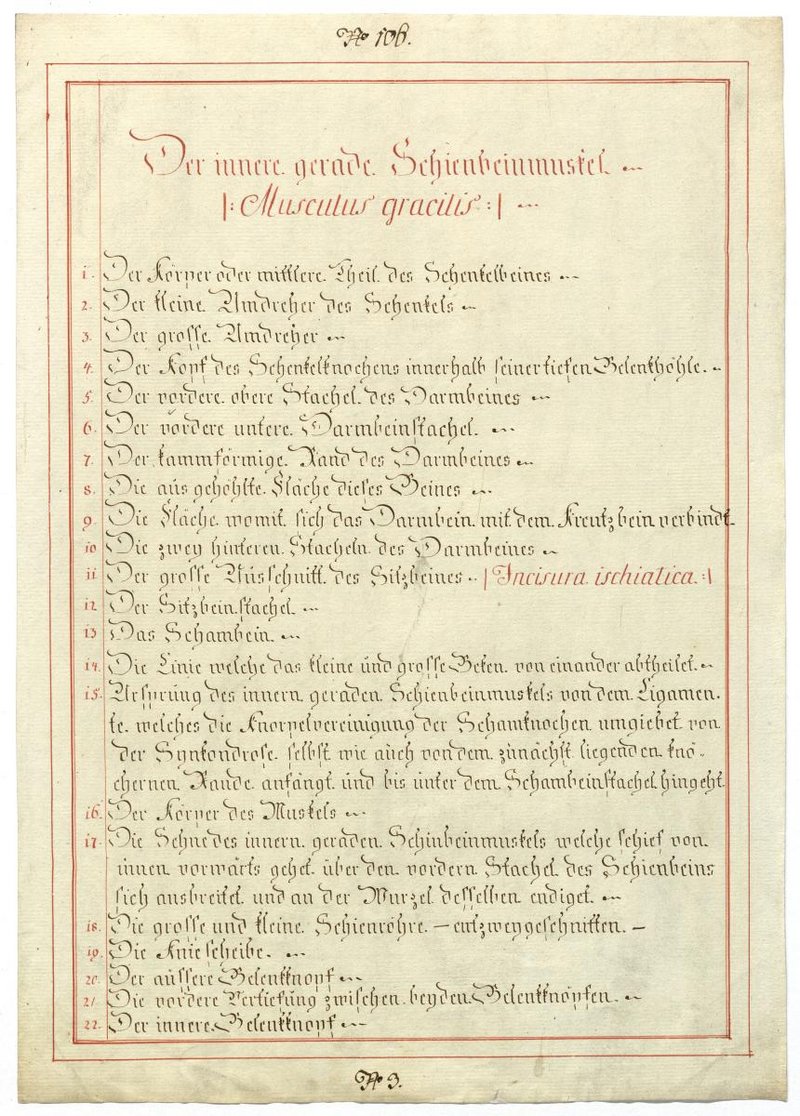 No 106.
Der innere gerade Schienbeinmuskel
|: Musculus gracilis :|
1. Der Körper oder mittlere Theil des Schenkelbeines
2. Der kleine Umdreher des Schenkels
3. Der grosse Umdreher
4. Der Kopf des Schenkelknochens innerhalb seiner tiefen Gelenkhöhle.
5. Der vordere obere Stachel des Darmbeines
6. Der vordere untere Darmbeinstachel.
7. Der kammförmige Rand des Darmbeines
8. Die ausgehöhlte Fläche dieses Beines
9. Die Fläche womit sich das Darmbein mit dem Kreutzbein verbindt.
10 Die zwey hinteren Stacheln des Darmbeines
11. Der grosse Ausschnitt des Sitzbeines |: Incisura ischiatica :|
12 Der Sitzbeinstachel
13 Das Schambein.
14. Die Linie welche das kleine und grosse Beken von einander abtheilet.
15. Ursprung des innern geraden Schienbeinmuskels von dem Ligamen.
te welches die Knorpelvereinigung der Schamknochen umgiebet von
der Synkondrose selbst wie auch von dem zunächst liegenden knö-
chernen Rande anfängt und bis unter dem Schambeinstachel hingeht.
16. Der Körper des Muskels
17. Die Sehne des innern geraden Schinbeinmuskels welche schief von
innen vorwärts gehet über den vordern Stachel des Schienbeins
sich ausbreitet und an der Wurzel desselben endiget.
18. Die grosse und kleine Schienröhre — entzweygeschnitten. —
19. Die Kniescheibe.
20. Der äussere Gelenkknopf
21 Die vordere Vertiefung zwischen beyden Gelenkknöpfen.
22. Der innere Gelenkknopf
No 3.